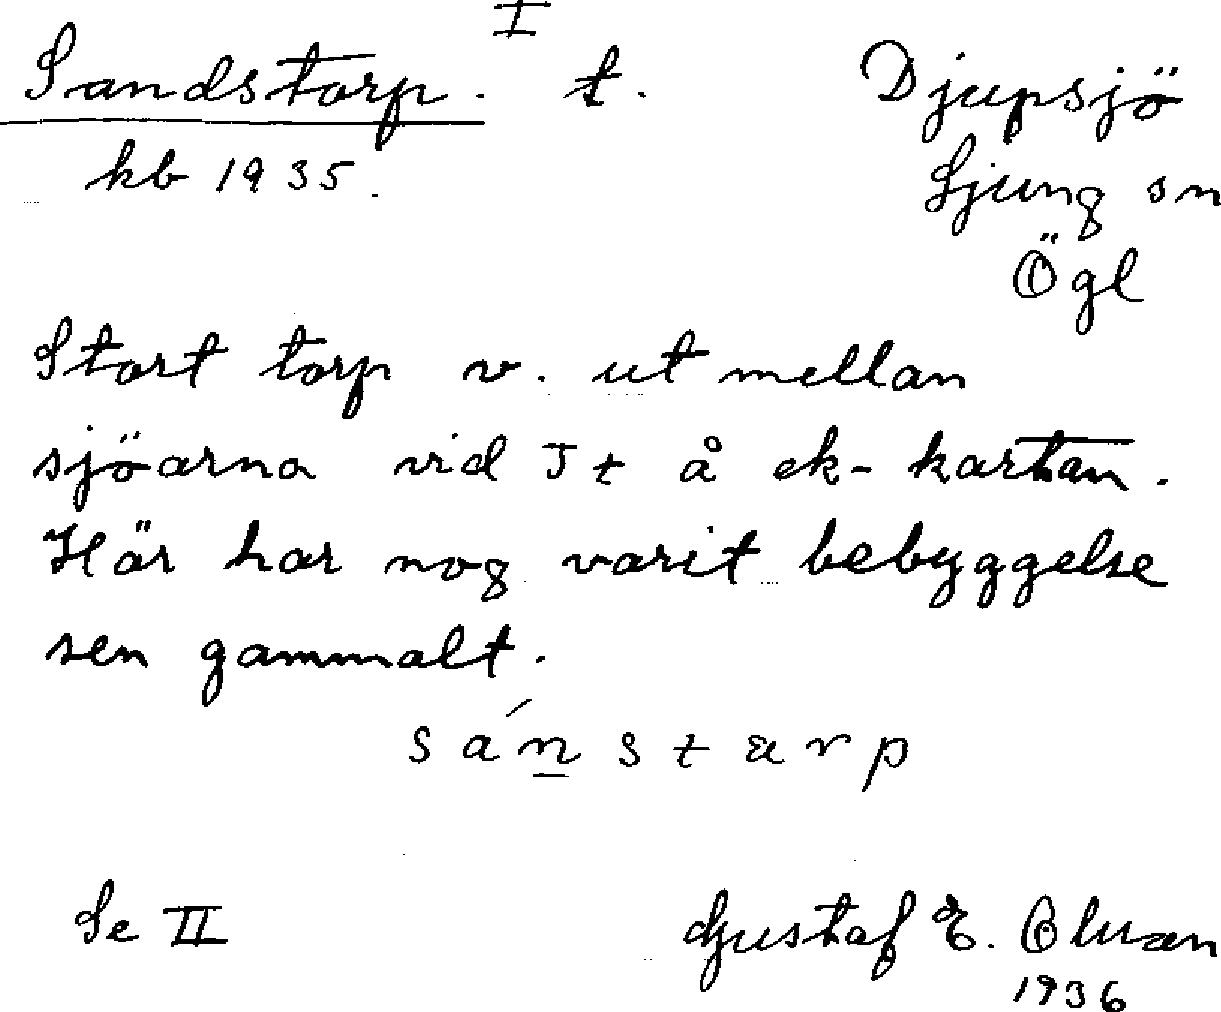 I
Sandstorp. t. Djupsjö
kb 1935. Ljung sn
Ögl
Stort torp v. ut mellan
sjöarna vid Jt å ek-kartan.
Här har nog varit bebyggelse
sen gammalt.
sánstarp
Se II Gustaf E.
1936